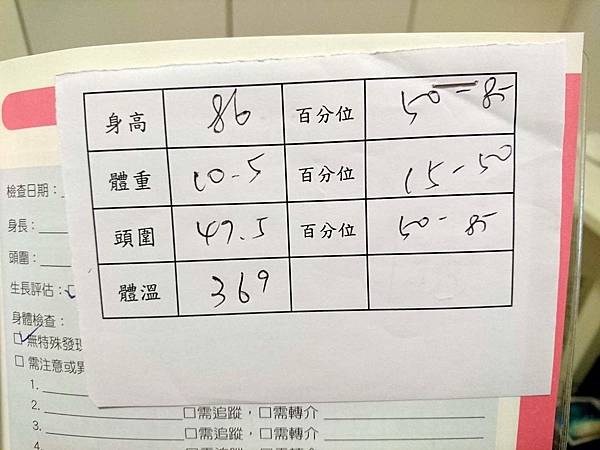 身高 86 百分位 50-85
體重 10.5 百分位 15-50
頭圍 47.5 百分位 50-85
體溫 36⁹
檢查日期：
身長：
頭圍：
生長評估：
身體檢查：
無特殊發現
□需注意或異
1.
2. □需追蹤，□需轉介
3. □需追蹤，□需轉介
4. □需追蹤，□需轉介